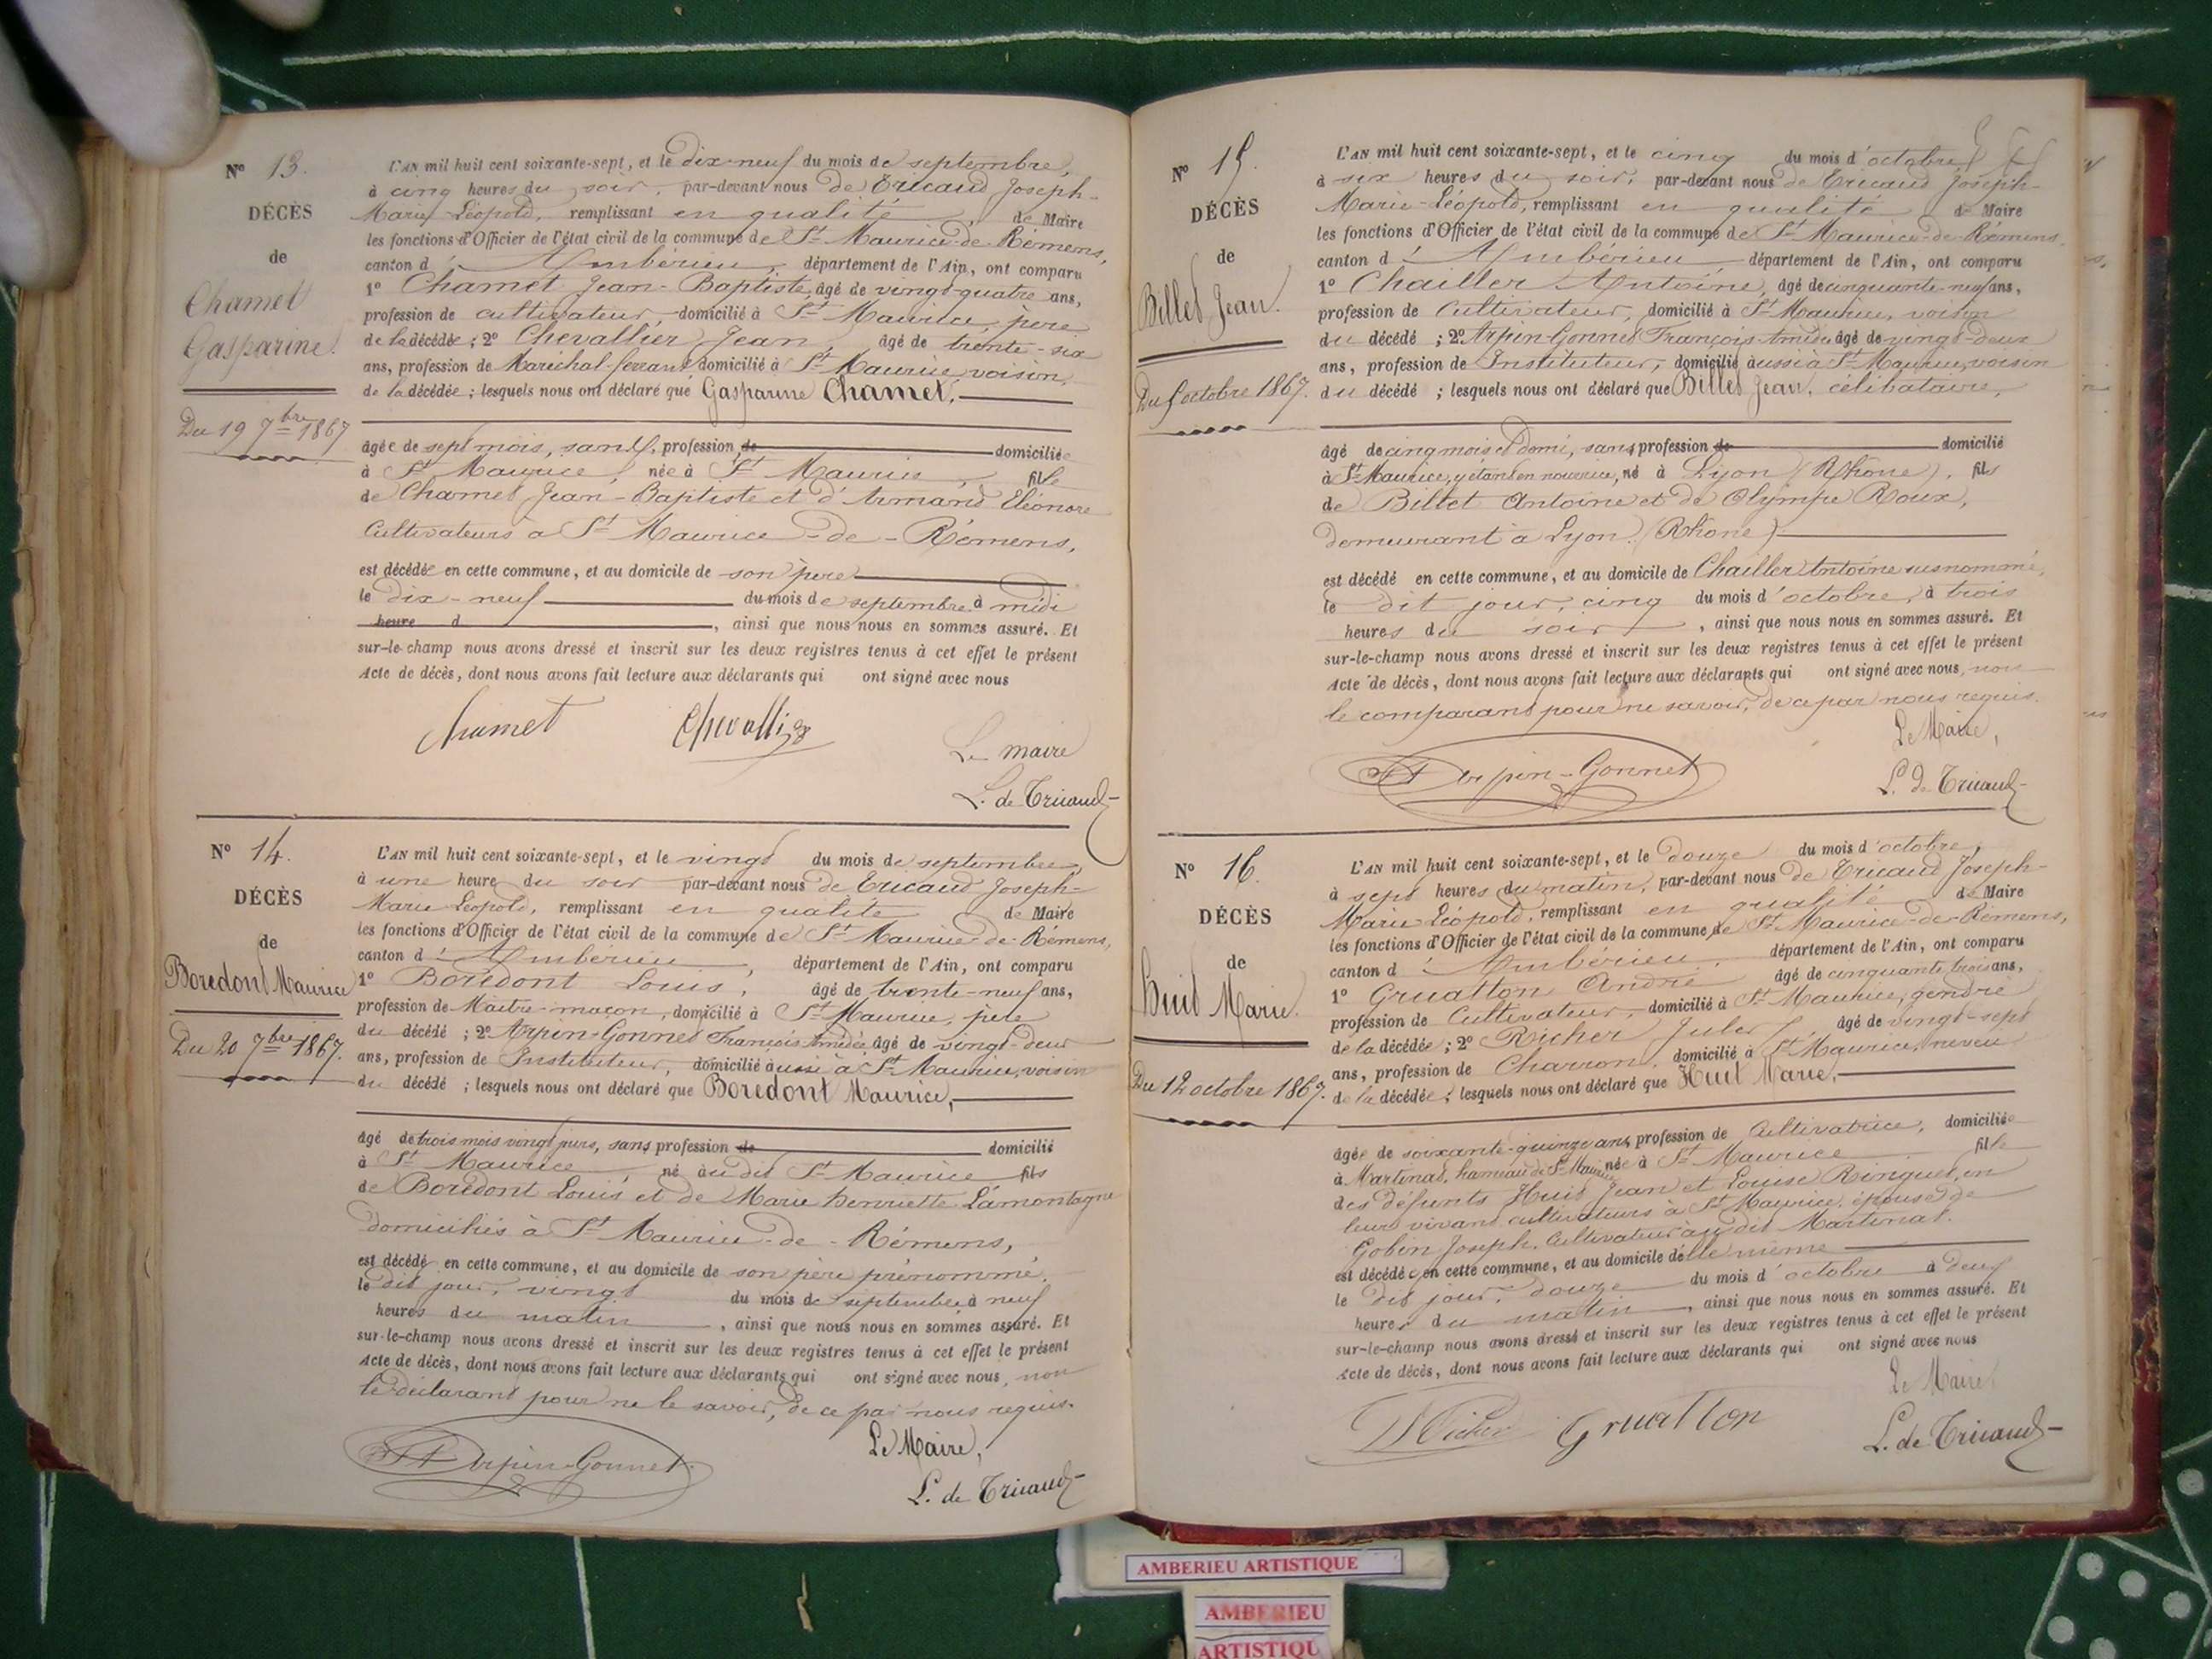 N° 13.
DÉCÈS
de
Chamet
Gasparine.
Du 19 7bre 1867
L'AN mil huit cent soixante-sept, et le dix-neuf du mois de septembre,
à cinq heures du soir, par-devant nous de Tricaud Joseph-
Marie Léopold, remplissant en qualité de Maire
les fonctions d'Officier de l'état civil de la commune de St Maurice-de-Rémens,
canton d'Ambérieu, département de l'Ain, ont comparu
1° Chamet Jean-Baptiste, âgé de vingt-quatre ans,
profession de cultivateur, domicilié à St Maurice, père
de la décédée ; 2° Chevallier Jean, âgé de trente-six
ans, profession de Maréchal-ferrant domicilié à St Maurice, voisin
de la décédée ; lesquels nous ont déclaré que Gasparine Chamet,
âgée de sept mois, sans profession de domiciliée
à St Maurice, née à St Maurice, fille
de Chamet Jean-Baptiste et d'Armand Eléonore
Cultivateurs à St Maurice-de-Rémens,
est décédée en cette commune, et au domicile de son père
le dix-neuf du mois de septembre à midi
heure d , ainsi que nous nous en sommes assuré. Et
sur-le-champ nous avons dressé et inscrit sur les deux registres tenus à cet effet le présent
Acte de décès, dont nous avons fait lecture aux déclarants qui ont signé avec nous
Chamet Chevallier
Le maire
L. de Tricaud
N° 14.
DÉCÈS
de
Boredont Maurice
Du 20 7bre 1867.
L'AN mil huit cent soixante-sept, et le vingt du mois de septembre,
à une heure du soir par-devant nous de Tricaud Joseph-
Marie Léopold, remplissant en qualité de Maire
les fonctions d'Officier de l'état civil de la commune de St Maurice-de-Rémens,
canton d'Ambérieu, département de l'Ain, ont comparu
1° Boredont Louis, âgé de trente-neuf ans,
profession de Maître-maçon, domicilié à St Maurice, père
du décédé ; 2° Arpin-Gonnet François Amédée âgé de vingt-deux
ans, profession de Instituteur, domicilié aussi à St Maurice, voisin
du décédé ; lesquels nous ont déclaré que Boredont Maurice,
âgé de trois mois vingt jours, sans profession de domicilié
à St Maurice né au dit St Maurice fils
de Boredont Louis et de Marie henriette Lamontagne
domiciliés à St Maurice-de-Rémens,
est décédé en cette commune, et au domicile de son père prénommé,
le dit jour, vingt du mois de septembre à neuf
heures du matin, ainsi que nous nous en sommes assuré. Et
sur-le-champ nous avons dressé et inscrit sur les deux registres tenus à cet effet le présent
Acte de décès, dont nous avons fait lecture aux déclarants qui ont signé avec nous, non
le déclarant pour ne le savoir, de ce par nous requis.
Arpin-Gonnet
Le Maire,
L. de Tricaud
N° 15.
DÉCÈS
de
Billet Jean.
Du 5 octobre 1867.
L'AN mil huit cent soixante-sept, et le cinq du mois d'octobre
à six heures du soir, par-devant nous de Tricaud Joseph-
Marie-Léopold, remplissant en qualité de Maire
les fonctions d'Officier de l'état civil de la commune de St Maurice-de-Rémens,
canton d'Ambérieu département de l'Ain, ont comparu
1° Chailler Antoine, âgé de cinquante-neuf ans,
profession de Cultivateur, domicilié à St Maurice, voisin
du décédé ; 2° Arpin-Gonnet François Amédée âgé de vingt-deux
ans, profession de Instituteur, domicilié aussi à St Maurice, voisin
du décédé ; lesquels nous ont déclaré que Billet Jean, célibataire,
âgé de cinq mois et demi, sans profession de domicilié
à St Maurice, y étant en nourrice, né à Lyon (Rhône), fils
de Billet Antoine et de Olympe Roux,
demeurant à Lyon (Rhône)
est décédé en cette commune, et au domicile de Chailler Antoine susnommé,
le dit jour, cinq du mois d'octobre, à trois
heures du soir, ainsi que nous nous en sommes assuré. Et
sur-le-champ nous avons dressé et inscrit sur les deux registres tenus à cet effet le présent
Acte de décès, dont nous avons fait lecture aux déclarants qui ont signé avec nous, non
le comparant pour ne savoir, de ce par nous requis.
Le Maire,
Arpin-Gonnet
L. de Tricaud
N° 16.
DÉCÈS
de
Huit Marie.
Du 12 octobre 1867.
L'AN mil huit cent soixante-sept, et le douze du mois d'octobre,
à sept heures du matin, par-devant nous de Tricaud Joseph-
Marie Léopold, remplissant en qualité de Maire
les fonctions d'Officier de l'état civil de la commune de St Maurice-de-Rémens,
canton d'Ambérieu, département de l'Ain, ont comparu
1° Gruatton André âgé de cinquante trois ans,
profession de Cultivateur, domicilié à St Maurice, gendre
de la décédée ; 2° Richer Jules, âgé de vingt-sept
ans, profession de Charron, domicilié à St Maurice, neveu
de la décédée ; lesquels nous ont déclaré que Huit Marie,
âgée de soixante-quinze ans, profession de Cultivatrice, domiciliée
à Martinat, hameau de St Maurice née à St Maurice fille
des défunts Huit Jean et Louise Ringuet, en
leur vivant cultivateurs à St Maurice, épouse de
Gobin Joseph, Cultivateur au dit Martinat.
est décédée en cette commune, et au domicile d'elle même
le dit jour, douze du mois d'octobre à deux
heures du matin, ainsi que nous nous en sommes assuré. Et
sur-le-champ nous avons dressé et inscrit sur les deux registres tenus à cet effet le présent
Acte de décès, dont nous avons fait lecture aux déclarants qui ont signé avec nous
Le Maire
Richer Gruatton
L. de Tricaud
AMBERIEU ARTISTIQUE
AMBERIEU
ARTISTIQU